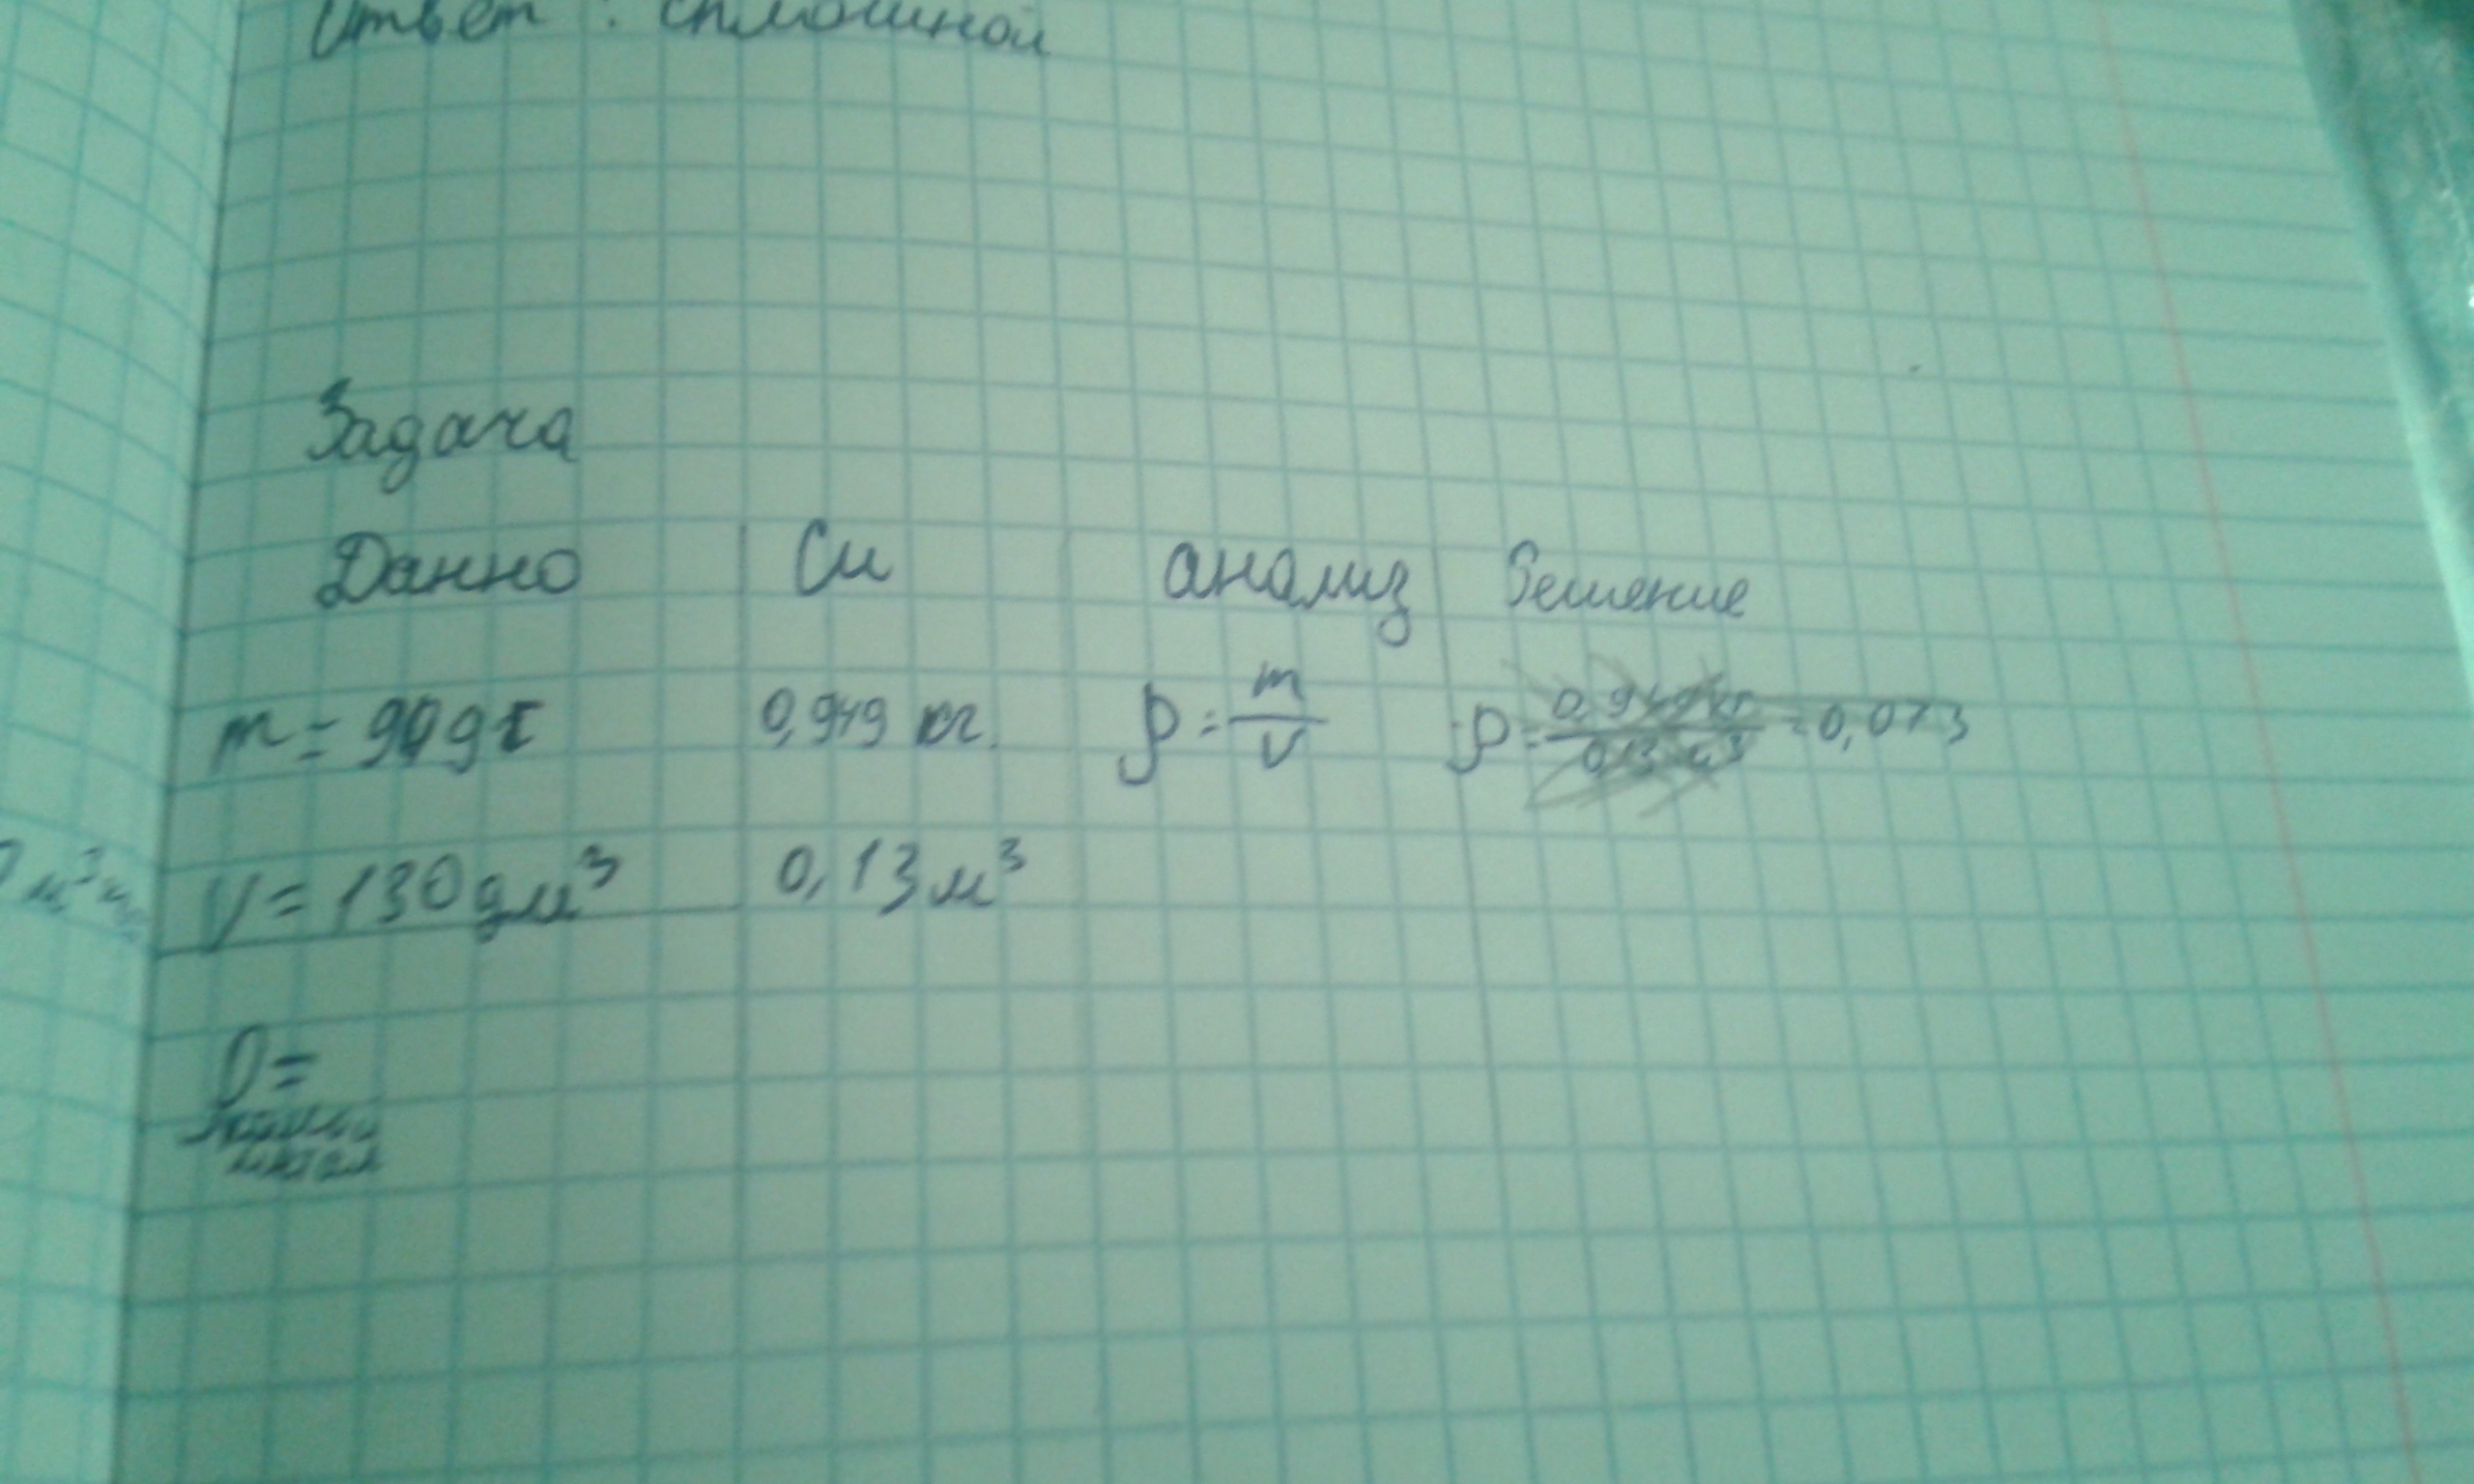 Ответ : сплошной
Задача
Данно Си анализ Решение
m = 949г 0,949 кг. ρ = m/V ρ = 0,949кг/0,13 м³ = 0,073
V = 130 дм³ 0,13 м³